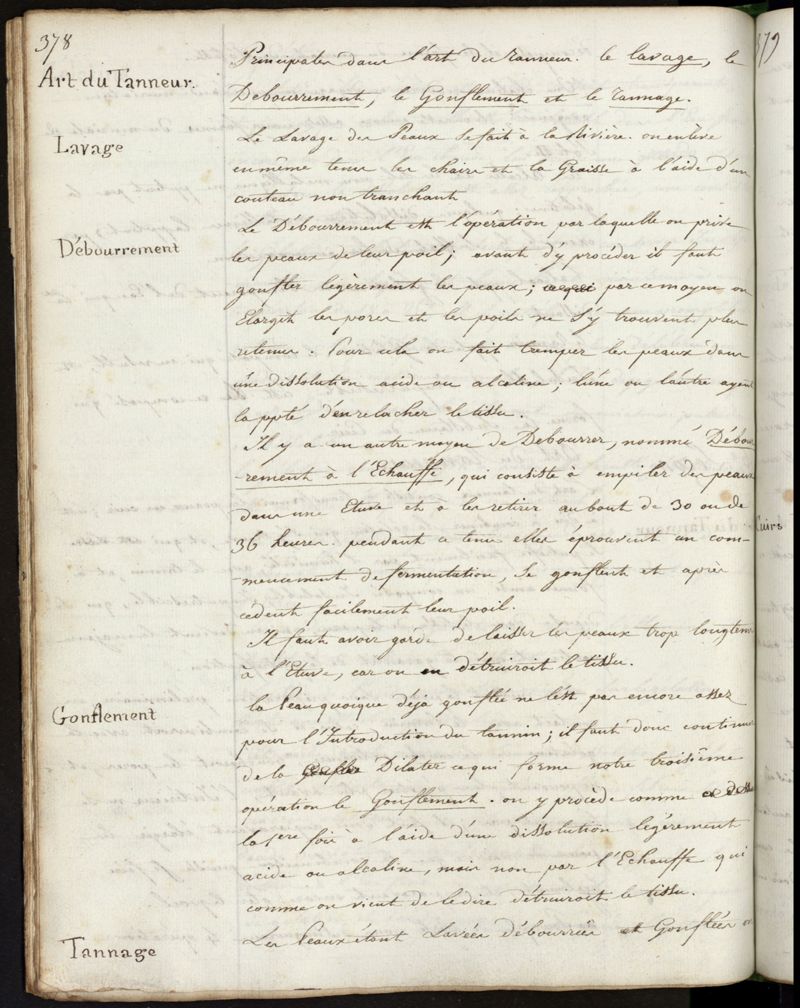 378
Art du Tanneur.
Principales dans l'art du Tanneur. le lavage, le
Debourrement, le Gonflement et le Tannage.
Lavage
Le Lavage des Peaux se fait à la Rivière. on enlève
en même tems les chairs et la Graisse à l'aide d'un
couteau non tranchant
Débourrement
Le Débourrement est l'opération par laquelle on prive
les peaux de leur poil; avant d'y procéder il faut
gonfler légèrement les peaux; par ce moyen on
Elargit les pores et les poils ne s'y trouvent plus
retenus. Pour cela on fait tremper les peaux dans
une dissolution acide ou alcaline; l'une ou l'autre ayant
la ppté d'en relacher le tissu.
Il y a un autre moyen de Debourrer, nommé Débour
-rement à l'Echauffe, qui consiste à empiler des peaux
dans une Etuve et à les retirer au bout de 30 ou de
36 heures. pendant ce tems elles éprouvent un com-
-mencement de fermentation, se gonflent et après
cèdent facilement leur poil.
Il faut avoir garde de laisser les peaux trop longtems
à l'Etuve, car on en détruiroit le tissu.
Gonflement
la Peau quoique déjà gonflée ne l'est pas encore assez
pour l'Introduction du tannin; il faut donc continuer
de la Dilater ce qui forme notre troisième
opération le Gonflement. on y procède comme
la 1ere fois à l'aide d'une dissolution legérement
acide ou alcaline, mais non par l'Echauffe qui
comme on vient de le dire détruiroit le tissu.
Tannage
Les Peaux étant Lavées débourrées et Gonflées on
379
Cuirs